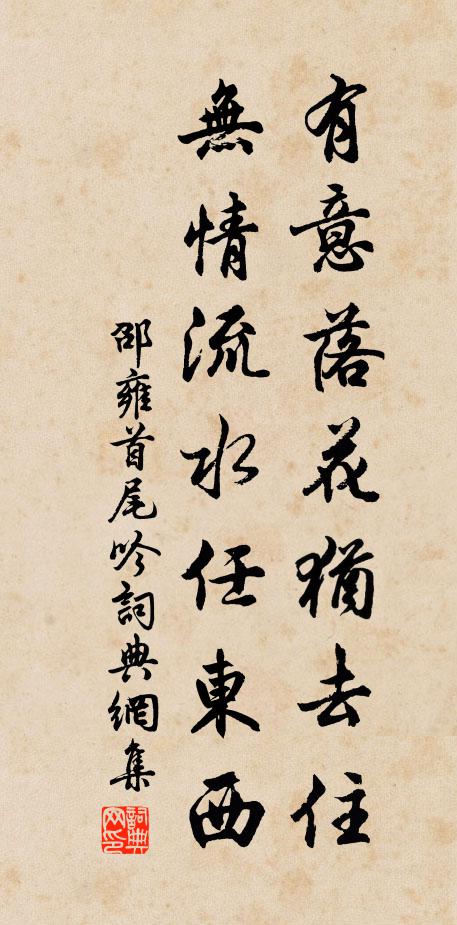 有意落花猶去住
無情流水任東西
邵雍首尾吟詞典網集
詞典網印